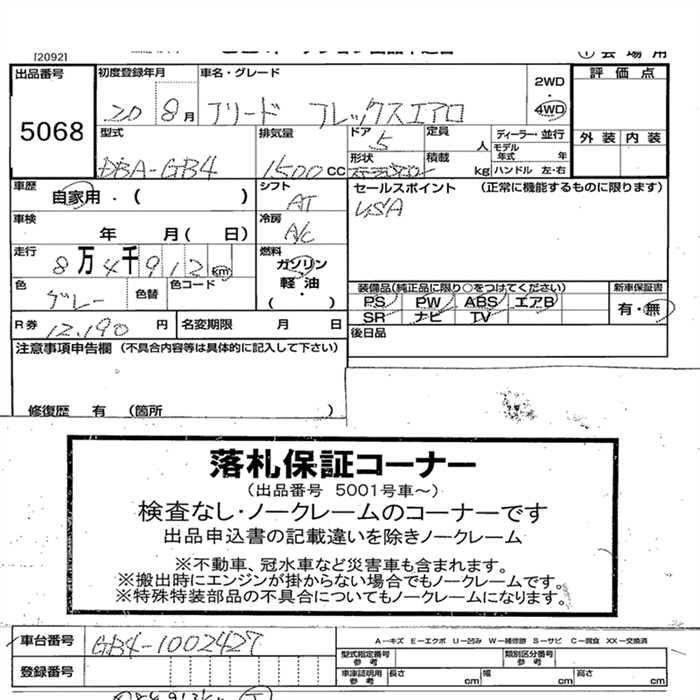 [2092]
① 会場用
出品番号 初度登録年月 車名・グレード 2WD 評価点
5068 20 8月 フリード フレックスエアロ ・ 4WD
型式 排気量 ドア 5 定員 人 ディーラー・並行 外装 内装
DBA-GB4 1500CC 形状 ステーションワゴン 積載 kg モデル年式 年 ハンドル 左・右
車歴 自家用・( ) シフト AT セールスポイント (正規に機能するものに限ります)
車検 年 月( 日) 冷房 A/C USA
走行 8万4千912km 燃料 ガソリン 軽油・( )
色 グレー 色替 色コード
装備品(純正品に限り○をつけてください) 新車保証書
PS PW ABS エアB 有・無
SR ナビ TV
R券 12,190円 名変期限 月 日 後日品
注意事項申告欄 (不具合内容等は具体的に記入して下さい)
修復歴 有 (箇所 )
落札保証コーナー
(出品番号 5001号車～)
検査なし・ノークレームのコーナーです
出品申込書の記載違いを除きノークレーム
※不動車、冠水車など災害車も含まれます。
※搬出時にエンジンが掛からない場合でもノークレームです。
※特殊特装部品の不具合についてもノークレームになります。
車台番号 GB4-1002427 A-キズ E-エクボ U-凹み W-補修跡 S-サビ C-腐食 XX-交換済
型式指定番号 参考 類別区分番号 参考
登録番号 車庫証明用 参考 長さ cm 幅 cm 高さ cm